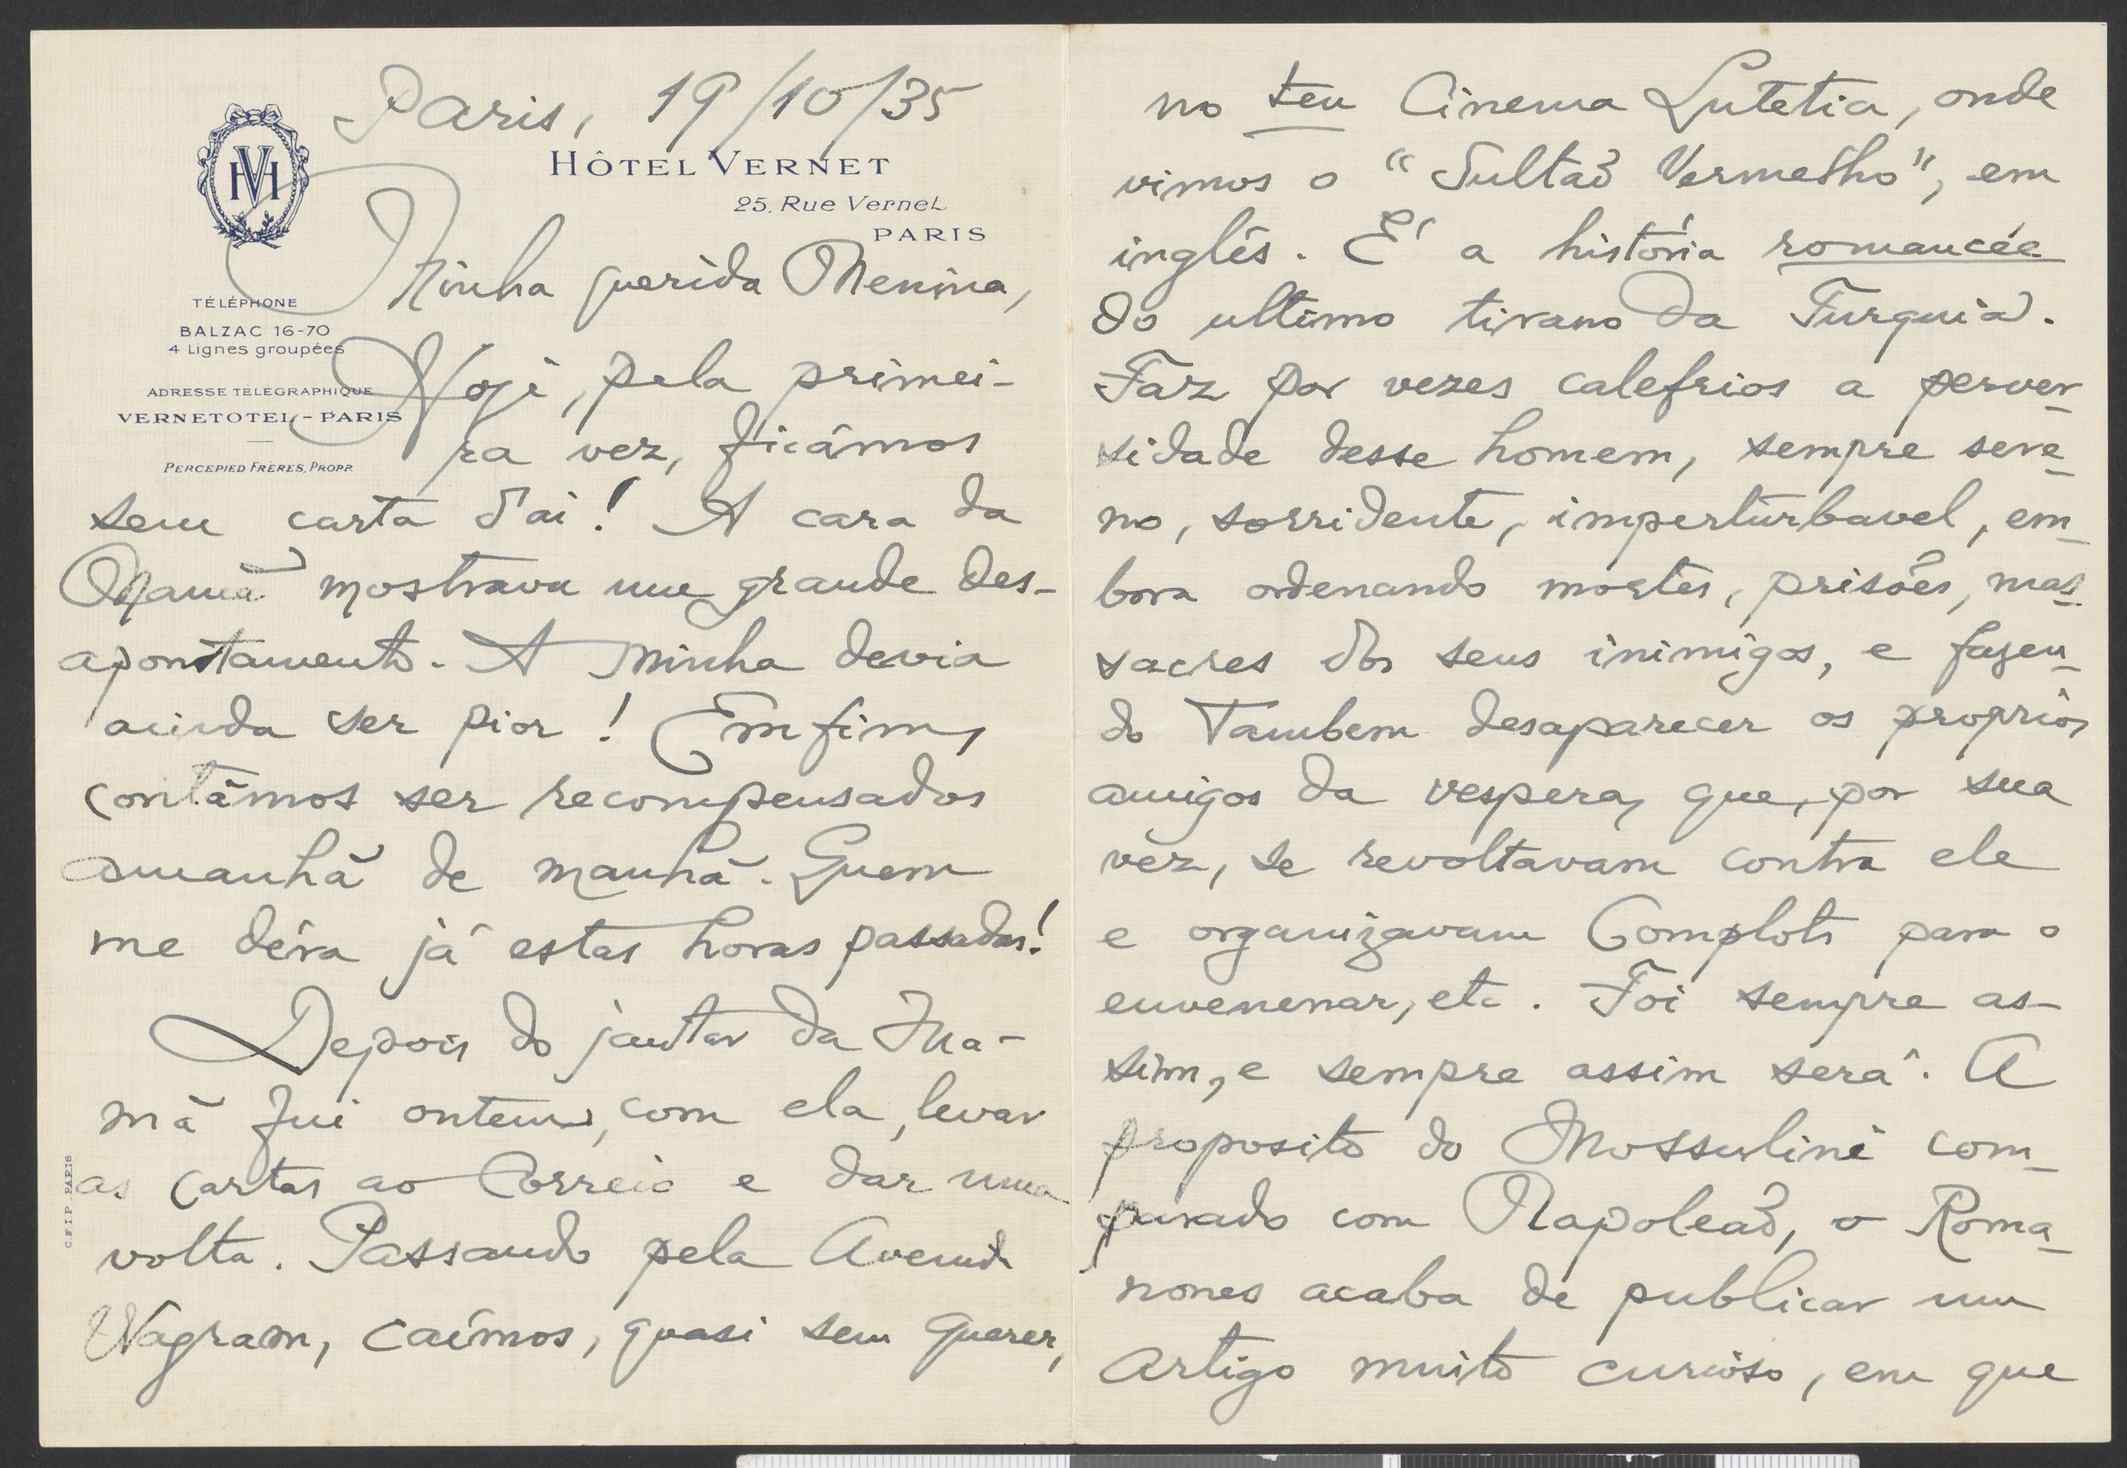 Paris, 19/10/35
HÔTEL VERNET
25, Rue Vernet
PARIS
HV
TÉLÉPHONE
BALZAC 16-70
4 Lignes groupées
ADRESSE TÉLÉGRAPHIQUE
VERNETOTEL - PARIS
PERCEPIED FRÈRES, PROPR.
Minha querida Menina,
Hoje, pela primei-
ra vez, ficámos
sem carta d'ai! A cara da
Mamã mostrava um grande des-
apontamento. A minha devia
ainda ser pior! Emfim,
contâmos ser recompensados
amanhã de manhã. Quem
me déra já estas horas passadas!
Depois do jantar da Ma-
mã fui ontem, com ela, levar
as cartas ao Correio e dar uma
volta. Passando pela Avenida
Wagram, caímos, quasi sem querer,
C.F.I.P. PARIS
no teu Cinema Lutetia, onde
vimos o "Sultaõ Vermelho", em
inglês. É a história romancée
do ultimo tirano da Turquia.
Faz por vezes calefrios a perver-
sidade desse homem, sempre sere-
no, sorridente, imperturbavel, em-
bora ordenando mortes, prisões, mas-
sacres dos seus inimigos, e fazen-
do tambem desaparecer os proprios
amigos da vespera, que, por sua
vêz, se revoltavam contra ele
e organizavam Complots para o
envenenar, etc. Foi sempre as-
sim, e sempre assim será. A
proposito do Mossulini com-
parado com Napoleaõ, o Roma-
nones acaba de publicar um
artigo muito curioso, em que